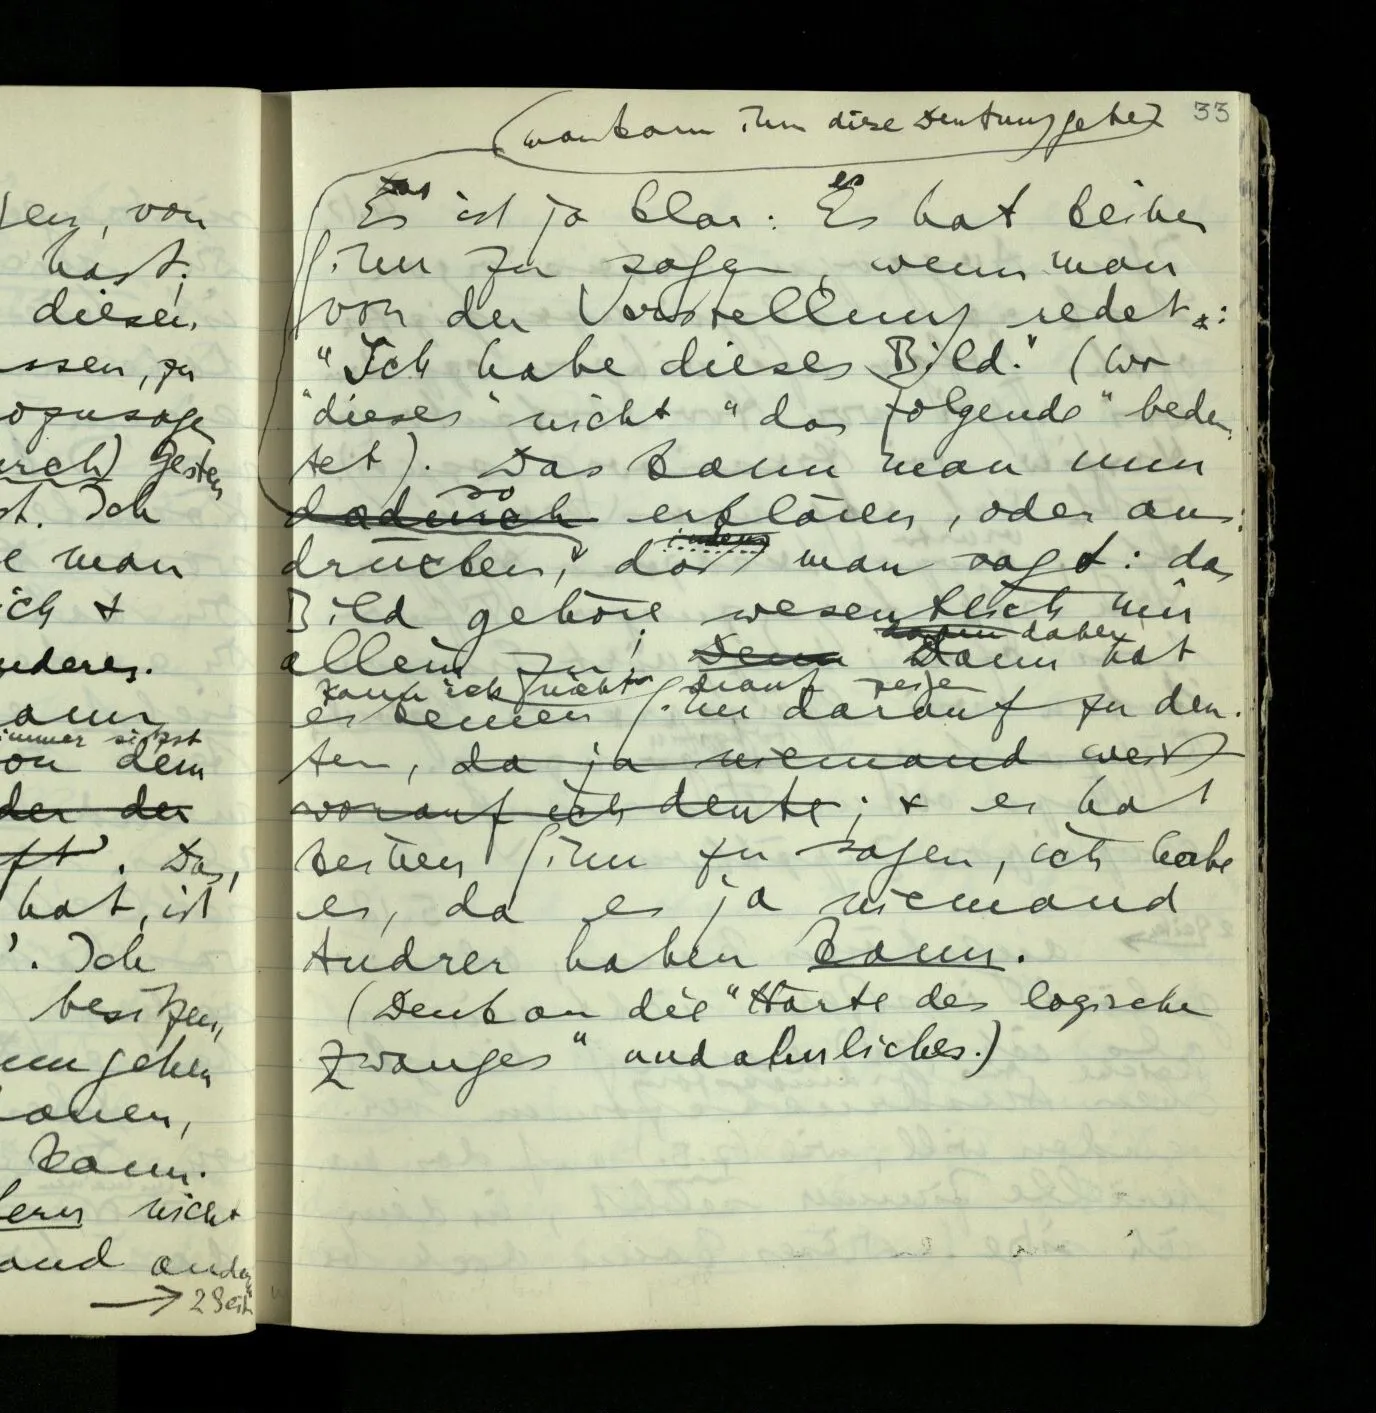 sen, von
hast;
diesen
ssen, zu
ozusage
urch) Gesten
st. Ich
e man
ich &
nderes.
ann
immer siehst
on dem
der der
ft. Das,
hat, ist
'. Ich
besitzen,
umgehen
onen,
kann.
fern nicht
and ander
→ 2 Seit
33
(man kann ihm diese Deutung geben)
Es das ist ja klar: Es es hat keinen
Sinn zu sagen, wenn man
von der Vorstellung redet:
"Ich habe dieses Bild." (wo
"dieses" nicht "das folgende" bedeu
tet). Das kann man nun
so
dadurch erklären, oder aus-
indem
drücken, daß man sagt: das
Bild gehöre wesentlich mir
daher
allein zu! Denn Dann hat
kann ich nicht drauf zeigen
es keinen Sinn darauf zu deu-
ten, da ja niemand weiß
worauf ich deute; & es hat
keinen Sinn zu sagen, ich habe
es, da es ja niemand
Andrer haben kann.
(Denk an die "Härte des logischen
Zwanges" und ähnliches.)